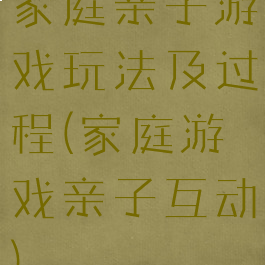 家庭亲子游
戏玩法及过
程(家庭游
戏亲子互动
)